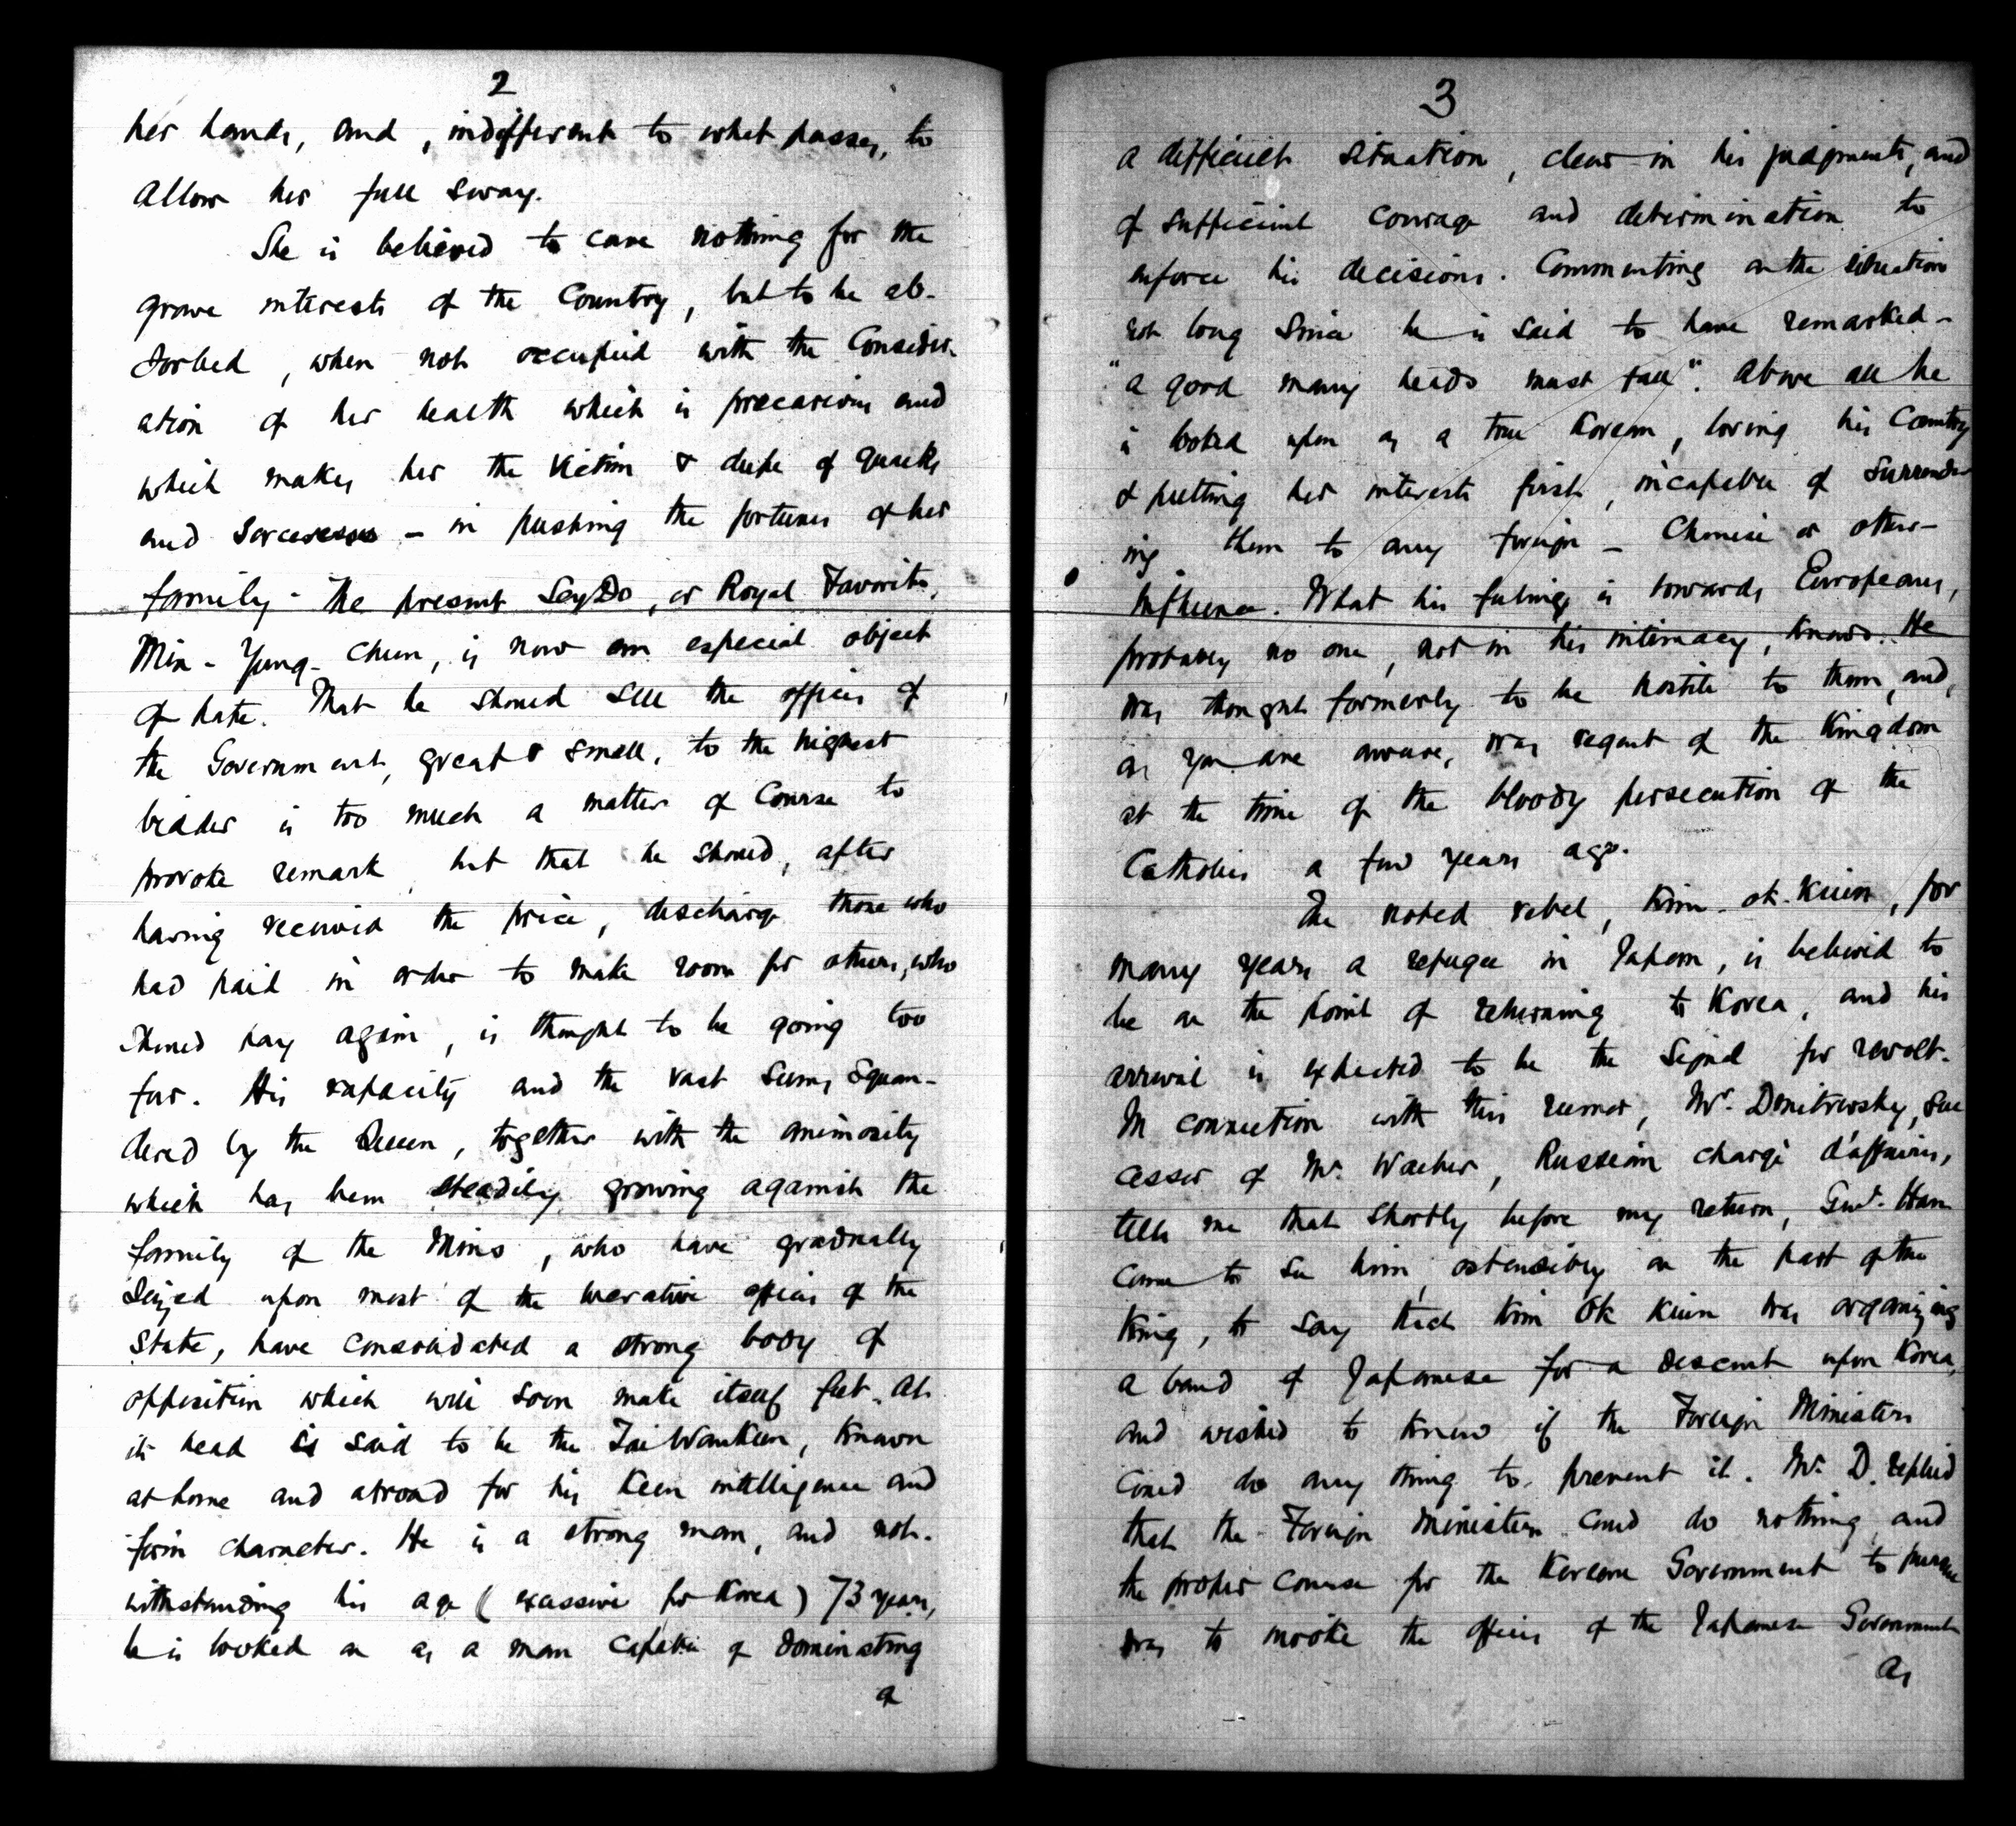 2
her hands, and, indifferent to what passes, to
allow her full sway.
She is believed to care nothing for the
grave interests of the Country, but to be ab-
sorbed, when not occupied with the Consider-
ation of her health which is precarious and
which makes her the victim & dupe of quacks
and Sorceresses - in pushing the fortunes of her
family - The present SeyDo, or Royal Favorite,
Min-Yung-Chun, is now an especial object
of hate. That he should sell the offices of
the Government, great & small, to the highest
bidder is too much a matter of Course to
provoke remark, but that he should, after
having received the price, discharge those who
had paid in order to make room for others, who
should pay again, is thought to be going too
far. His rapacity and the vast sums squan-
dered by the Queen, together with the animosity
which has been steadily growing against the
family of the Mins, who have gradually
Seized upon most of the lucrative offices of the
State, have consolidated a strong body of
opposition which will soon make itself felt. At
its head is said to be the Tai Wan Kun, known
at home and abroad for his keen intelligence and
firm character. He is a strong man, and not-
withstanding his age (excessive for Korea) 73 years,
he is looked on as a man capable of dominating
a
3
a difficult situation, clear in his judgments, and
of sufficient courage and determination to
enforce his decisions. Commenting on the situation
not long since he is said to have remarked -
"a good many heads must fall". Above all he
is looked upon as a true Korean, loving his Country
& putting her interests first, incapable of surrender
ing them to any foreign - Chinese or other -
influence. What his feelings is towards Europeans,
probably no one, not in his intimacy, knows. He
was thought formerly to be hostile to them, and,
as you are aware, was regent of the Kingdom
at the time of the bloody persecution of the
Catholics a few years ago.
The noted rebel, Kim-ok-Kiun, for
many years a refugee in Japan, is believed to
be on the point of returning to Korea, and his
arrival is expected to be the signal for revolt.
In connection with this rumor, Mr. Dmitrevsky, suc
cessor of Mr. Waeber, Russian chargé d'affaires,
tells me that shortly before my return, Genl. Han
came to see him, ostensibly on the part of the
King, to say that Kim Ok Kiun was organizing
a band of Japanese for a descent upon Korea,
and wished to know if the Foreign Ministers
could do any thing to prevent it. Mr. D. replied
that the Foreign Ministers could do nothing and
the proper course for the Korean Government to pursue
was to invoke the offices of the Japanese Government
as